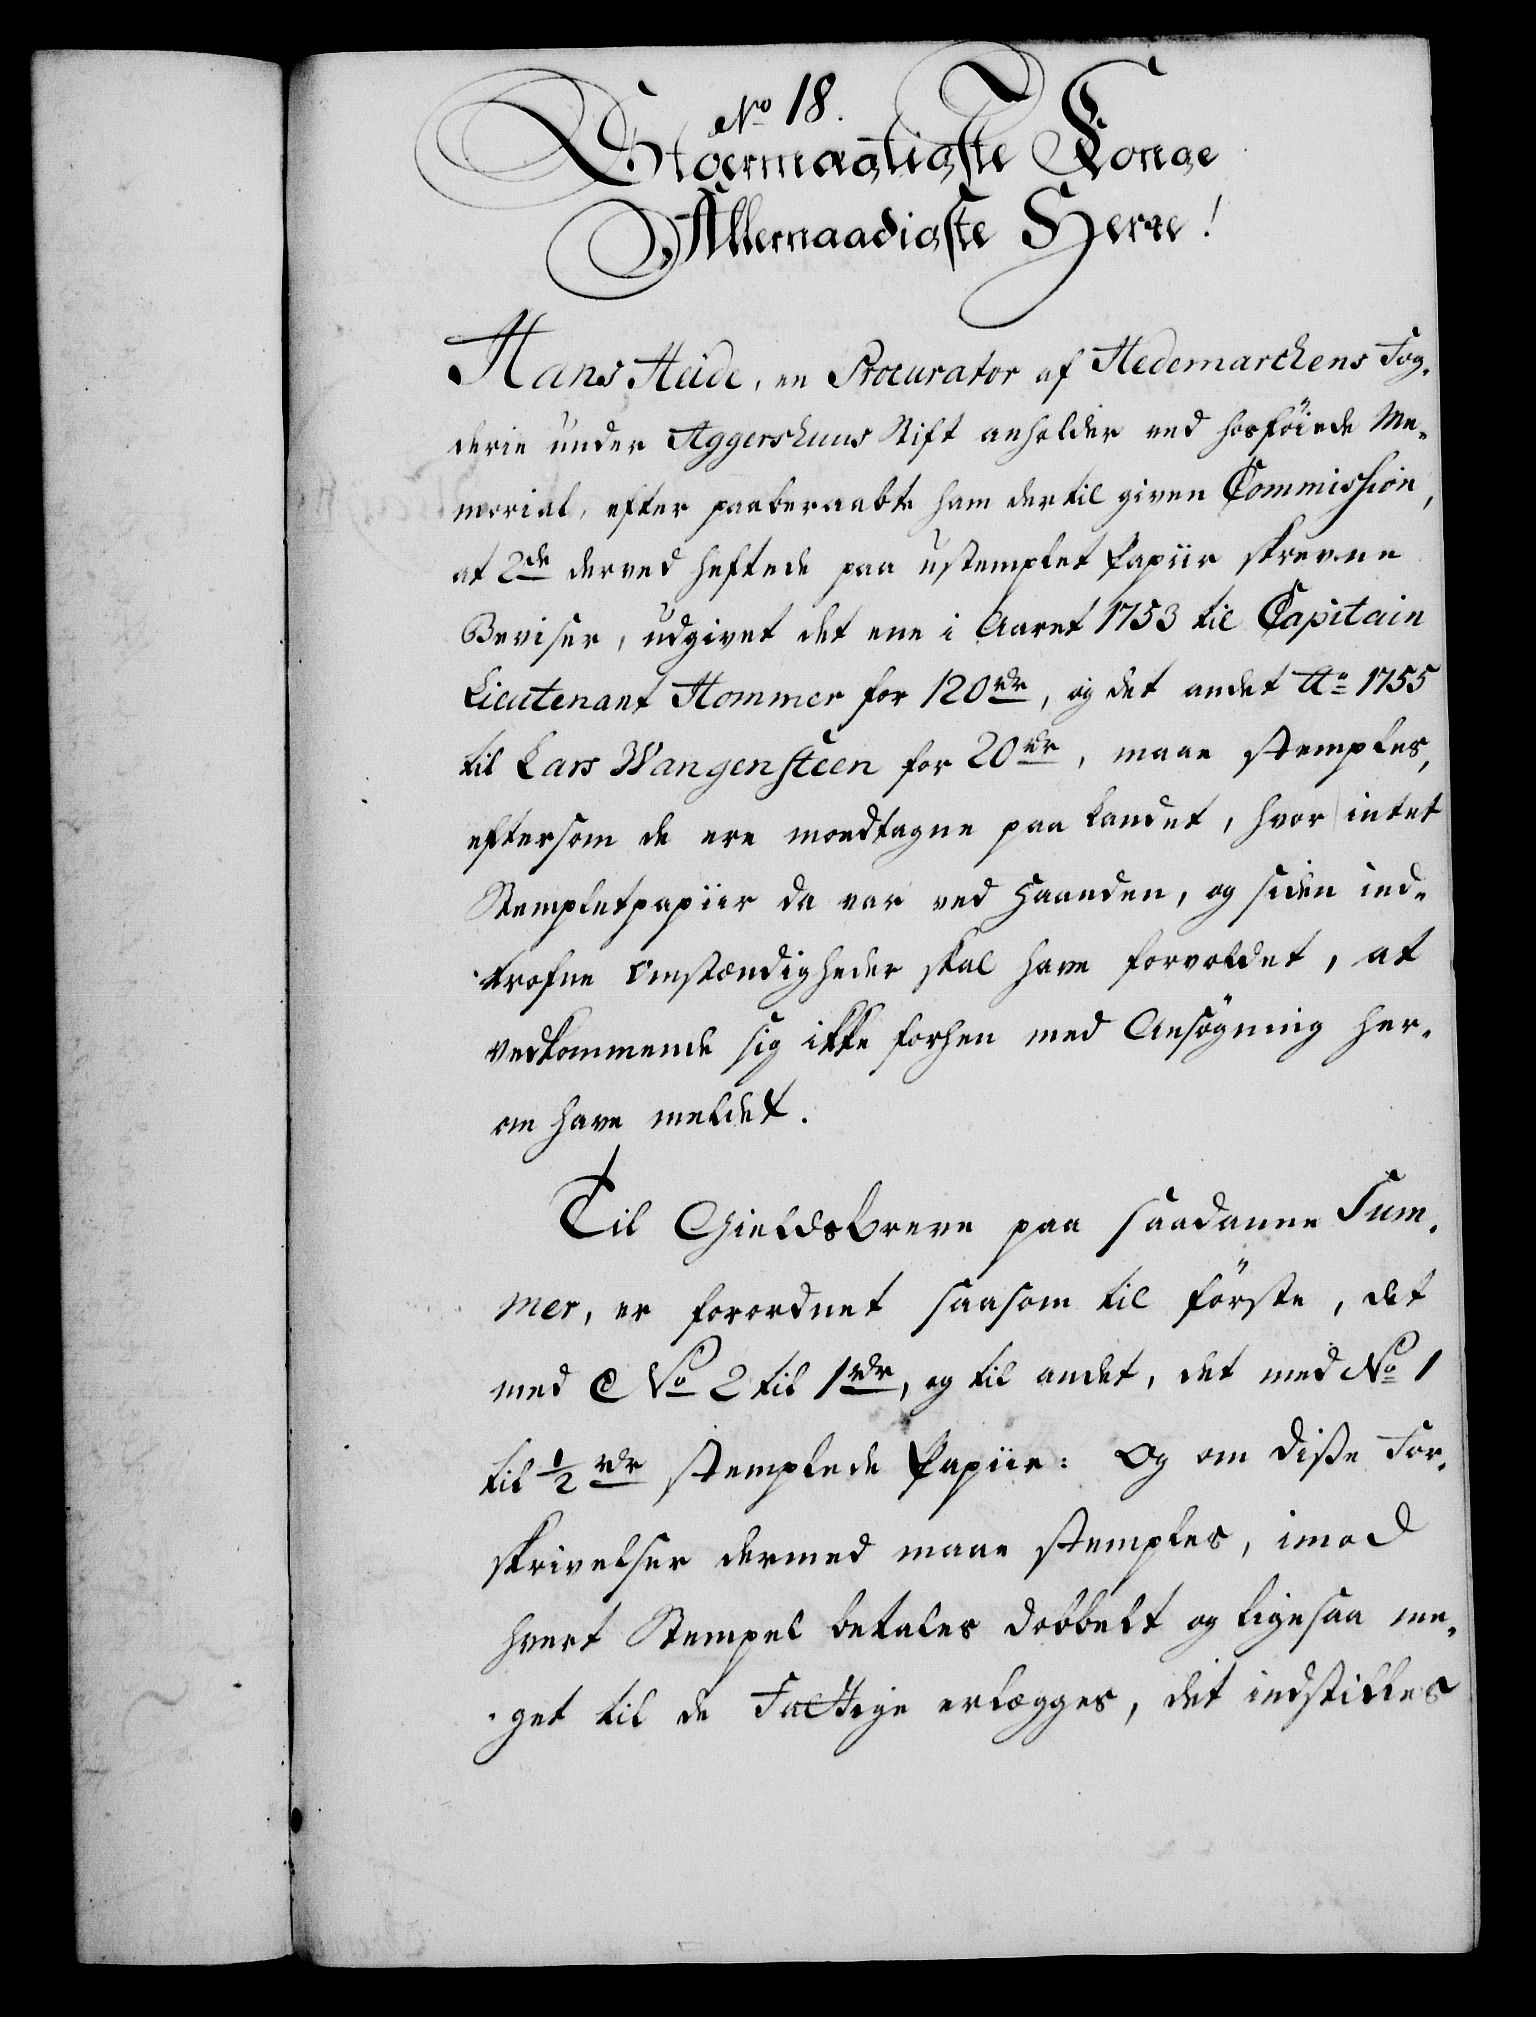 No 18.
Stormægtigste Konge
Allernaadigste Herre!
Hans Heide, en Procurator af Hedemarckens Fog-
derie under Aggershuus Stift anholder ved hosföiede Me-
morial, efter paaberaabte ham dertil given Commission,
at 2de derved heftede paa ustemplet Papiir skrevne
Beviser, udgivet det ene i Aaret 1753 til Capitain
Lieutenant Hommer for 120 rdr, og det andet Ao 1755
til Lars Wangensteen for 20 rdr, maae stemples,
eftersom de ere modtagne paa Landet, hvor intet
Stempletpapiir da var ved Haanden, og siden ind-
trofne Omstændigheder skal have forvoldet, at
vedkommende sig ikke forhen med Ansögning her-
om have meldet.
Til Gieldsbreve paa saadanne Sum-
mer, er forordnet saasom til förste, det
med C No 2 til 1 rdr, og til andet, det med No 1
til 1/2 rdr stemplede Papiir: Og om disse For-
skrivelser dermed maae stemples, imod
hvert Stempel betales dobbelt og ligesaa me-
get til de Fattige erlægges, det indstilles